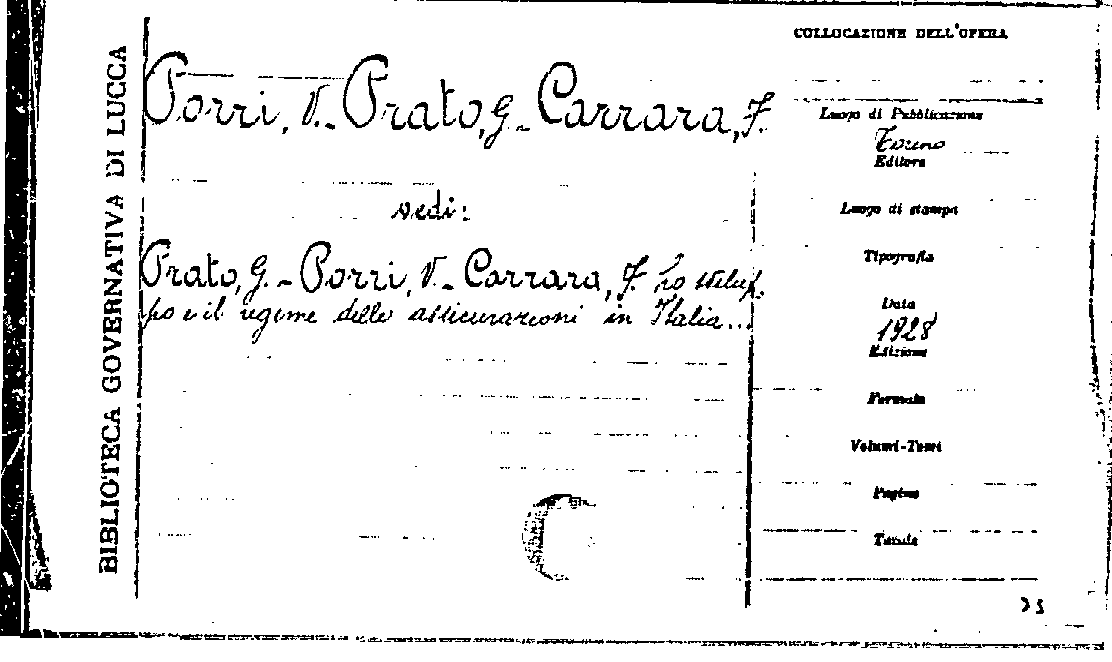 BIBLIOTECA GOVERNATIVA DI LUCCA
Porri, V. - Prato, G. - Carrara, F.
vedi:
Prato, G. - Porri, V. - Carrara, F. Lo svilup-
po e il regime delle assicurazioni in Italia...
COLLOCAZIONE DELL'OPERA
Luogo di Pubblicazione
Torino
Editore
Luogo di stampa
Tipografia
Data
1928
Edizione
Formato
Volumi-Tomi
Pagine
Tavole